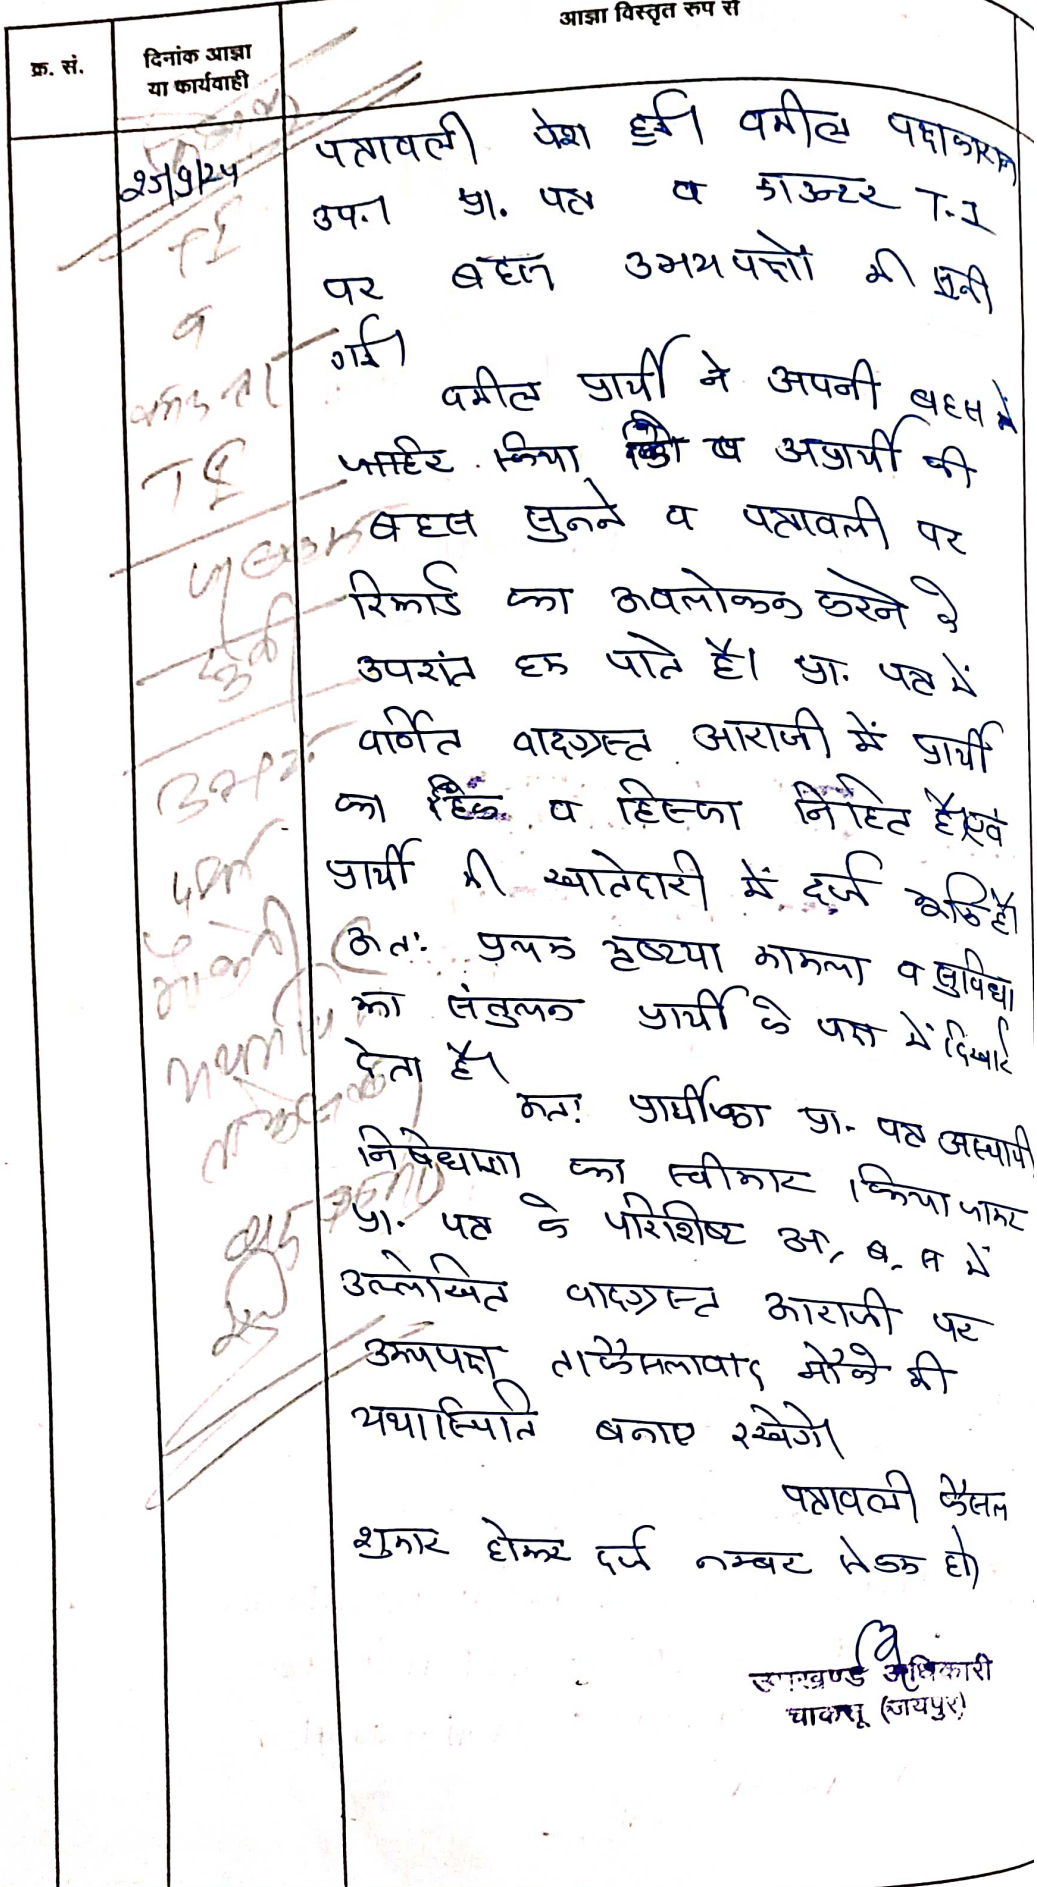 आज्ञा विस्तृत रूप से
क्र. सं.
दिनांक आज्ञा
या कार्यवाही
25/9/24
पत्रावली पेश हुई। वकील पक्षकारान
उप.। प्रा. पत्र व काउन्टर T.I
पर बहस उभयपक्षों की सुनी
गई।
वकील प्रार्थी ने अपनी बहस में
जाहिर किया की व अप्रार्थी की
बहस सुनने व पत्रावली पर
रिकार्ड का अवलोकन करने के
उपरांत हम पाते है। प्रा. पत्र में
वर्णित वादग्रस्त आराजी में प्रार्थी
का हक व हिस्सा निहित है एवं
प्रार्थी की खातेदारी में दर्ज भूमि है।
अतः प्रथम दृष्टया मामला व सुविधा
का संतुलन प्रार्थी के पक्ष में दिखाई
देता है।
अतः प्रार्थी का प्रा. पत्र अस्थायी
निषेधाज्ञा का स्वीकार किया जाकर
प्रा. पत्र के परिशिष्ट अ, ब, स में
उल्लेखित वादग्रस्त आराजी पर
उभयपक्ष ताफैसलावाद मौके की
यथास्थिति बनाए रखेगे।
पत्रावली फैसल
शुमार होकर दर्ज नम्बर से कम हो।
उपखण्ड अधिकारी
चाकसू (जयपुर)
TI
व
काउन्टर
TI